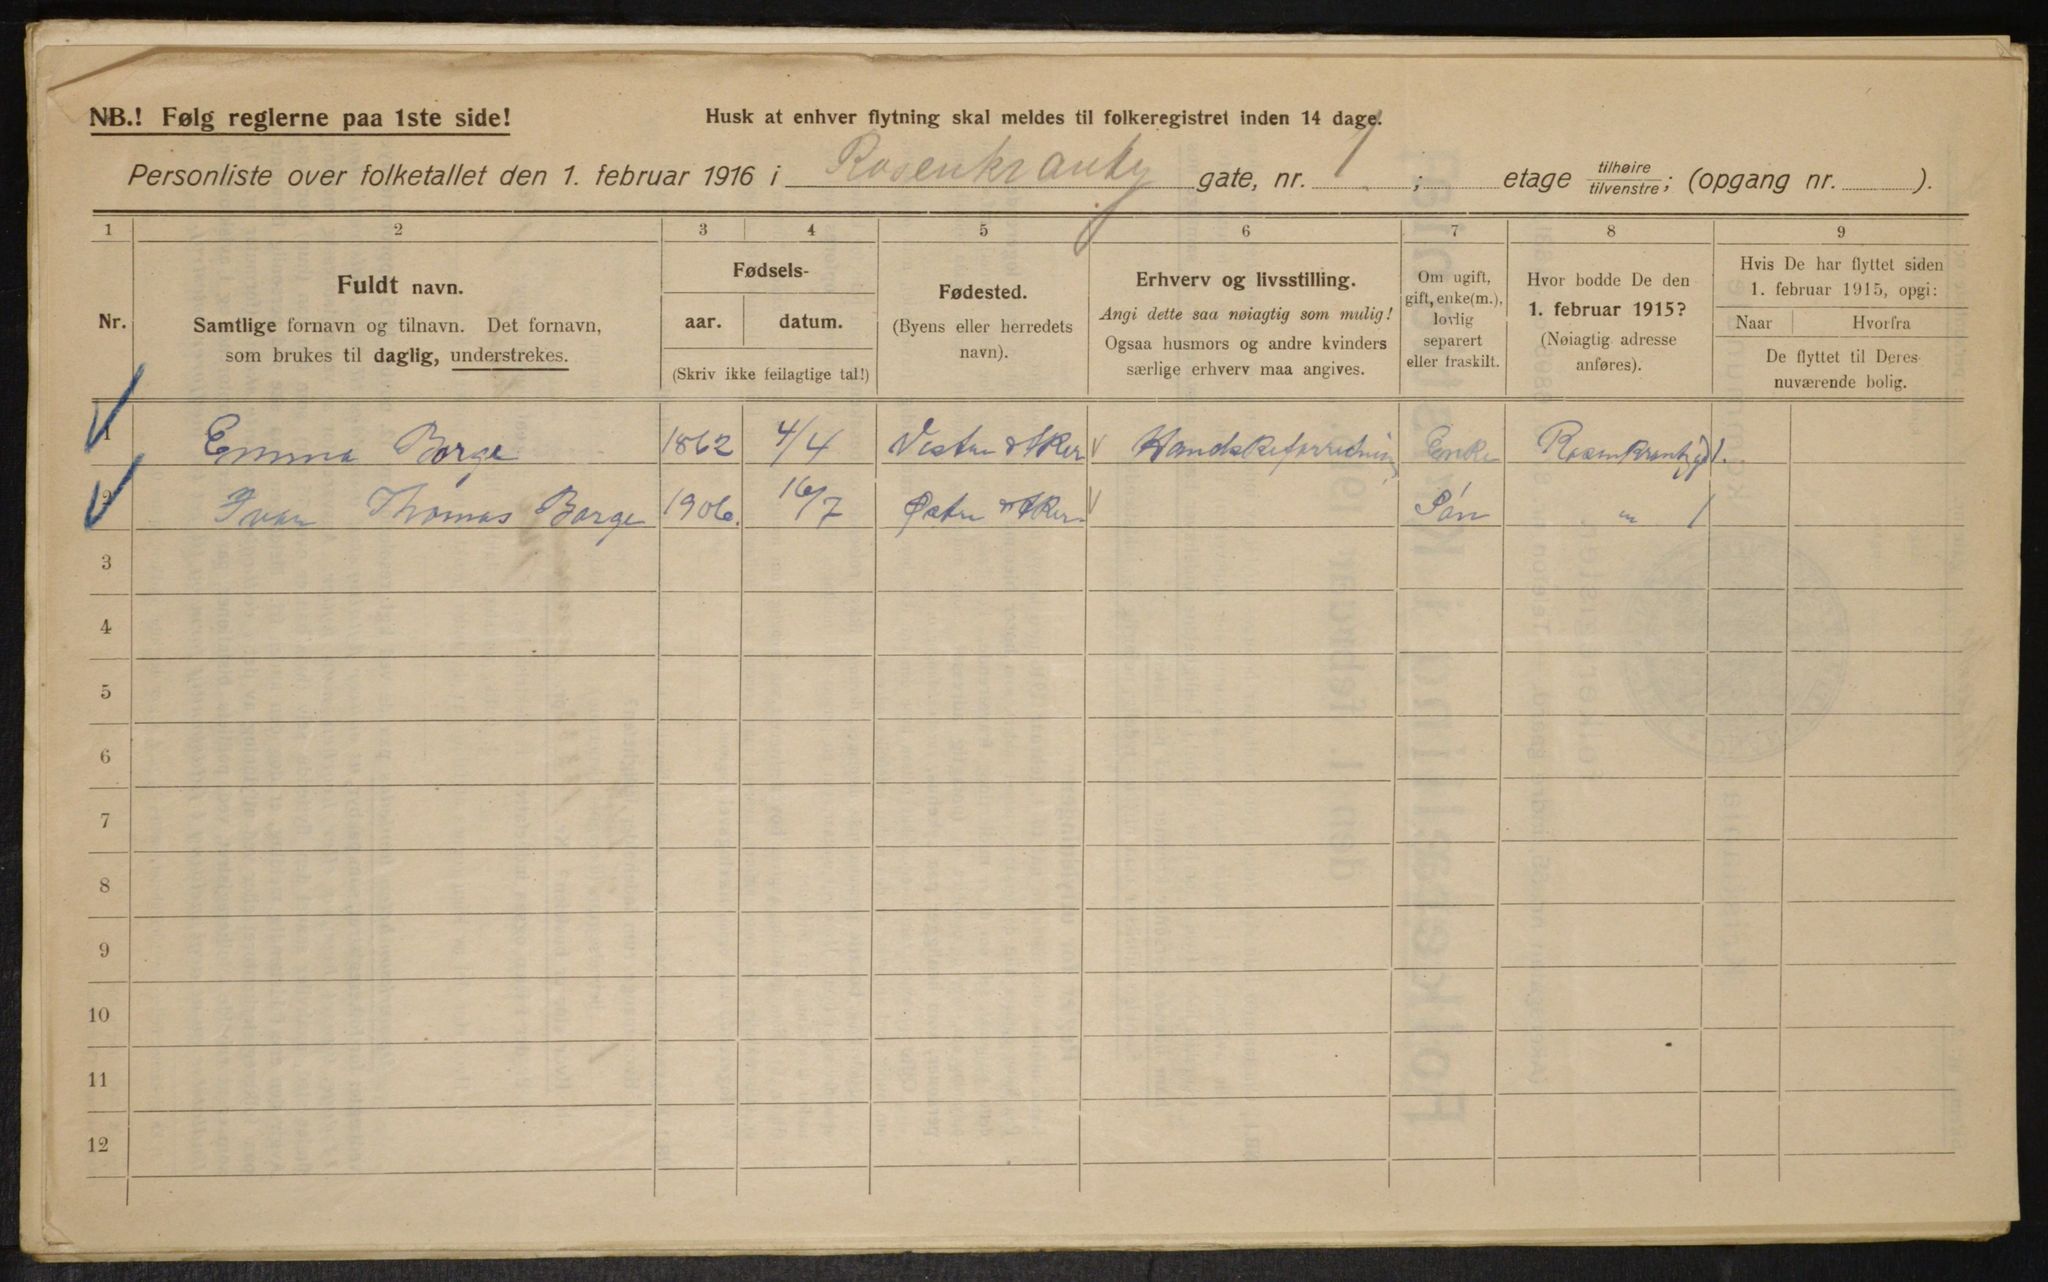 NB.! Følg reglerne paa 1ste side! Husk at enhver flytning skal meldes til folkeregistret inden 14 dage.
Personliste over folketallet den 1. februar 1916 i Rosenkrantz gate, nr. 1 ; etage tilhøire/tilvenstre; (opgang nr. ).
1 2 3 4 5 6 7 8 9
Nr.
Fuldt navn.
Samtlige fornavn og tilnavn. Det fornavn,
som brukes til daglig, understrekes.
Fødsels-
aar. datum.
(Skriv ikke feilagtige tal!)
Fødested.
(Byens eller herredets
navn).
Erhverv og livsstilling.
Angi dette saa nøiagtig som mulig!
Ogsaa husmors og andre kvinders
særlige erhverv maa angives.
Om ugift,
gift, enke(m.),
lovlig
separert
eller fraskilt.
Hvor bodde De den
1. februar 1915?
(Nøiagtig adresse
anføres).
Hvis De har flyttet siden
1. februar 1915, opgi:
Naar Hvorfra
De flyttet til Deres
nuværende bolig.
1 Emma Borge 1862 4/4 Vestre Aker Handskeforretning Enke Rosenkrantzgd 1.
2 Ivar Thomas Borge 1906. 16/7 Østre Aker Sön " 1
3
4
5
6
7
8
9
10
11
12